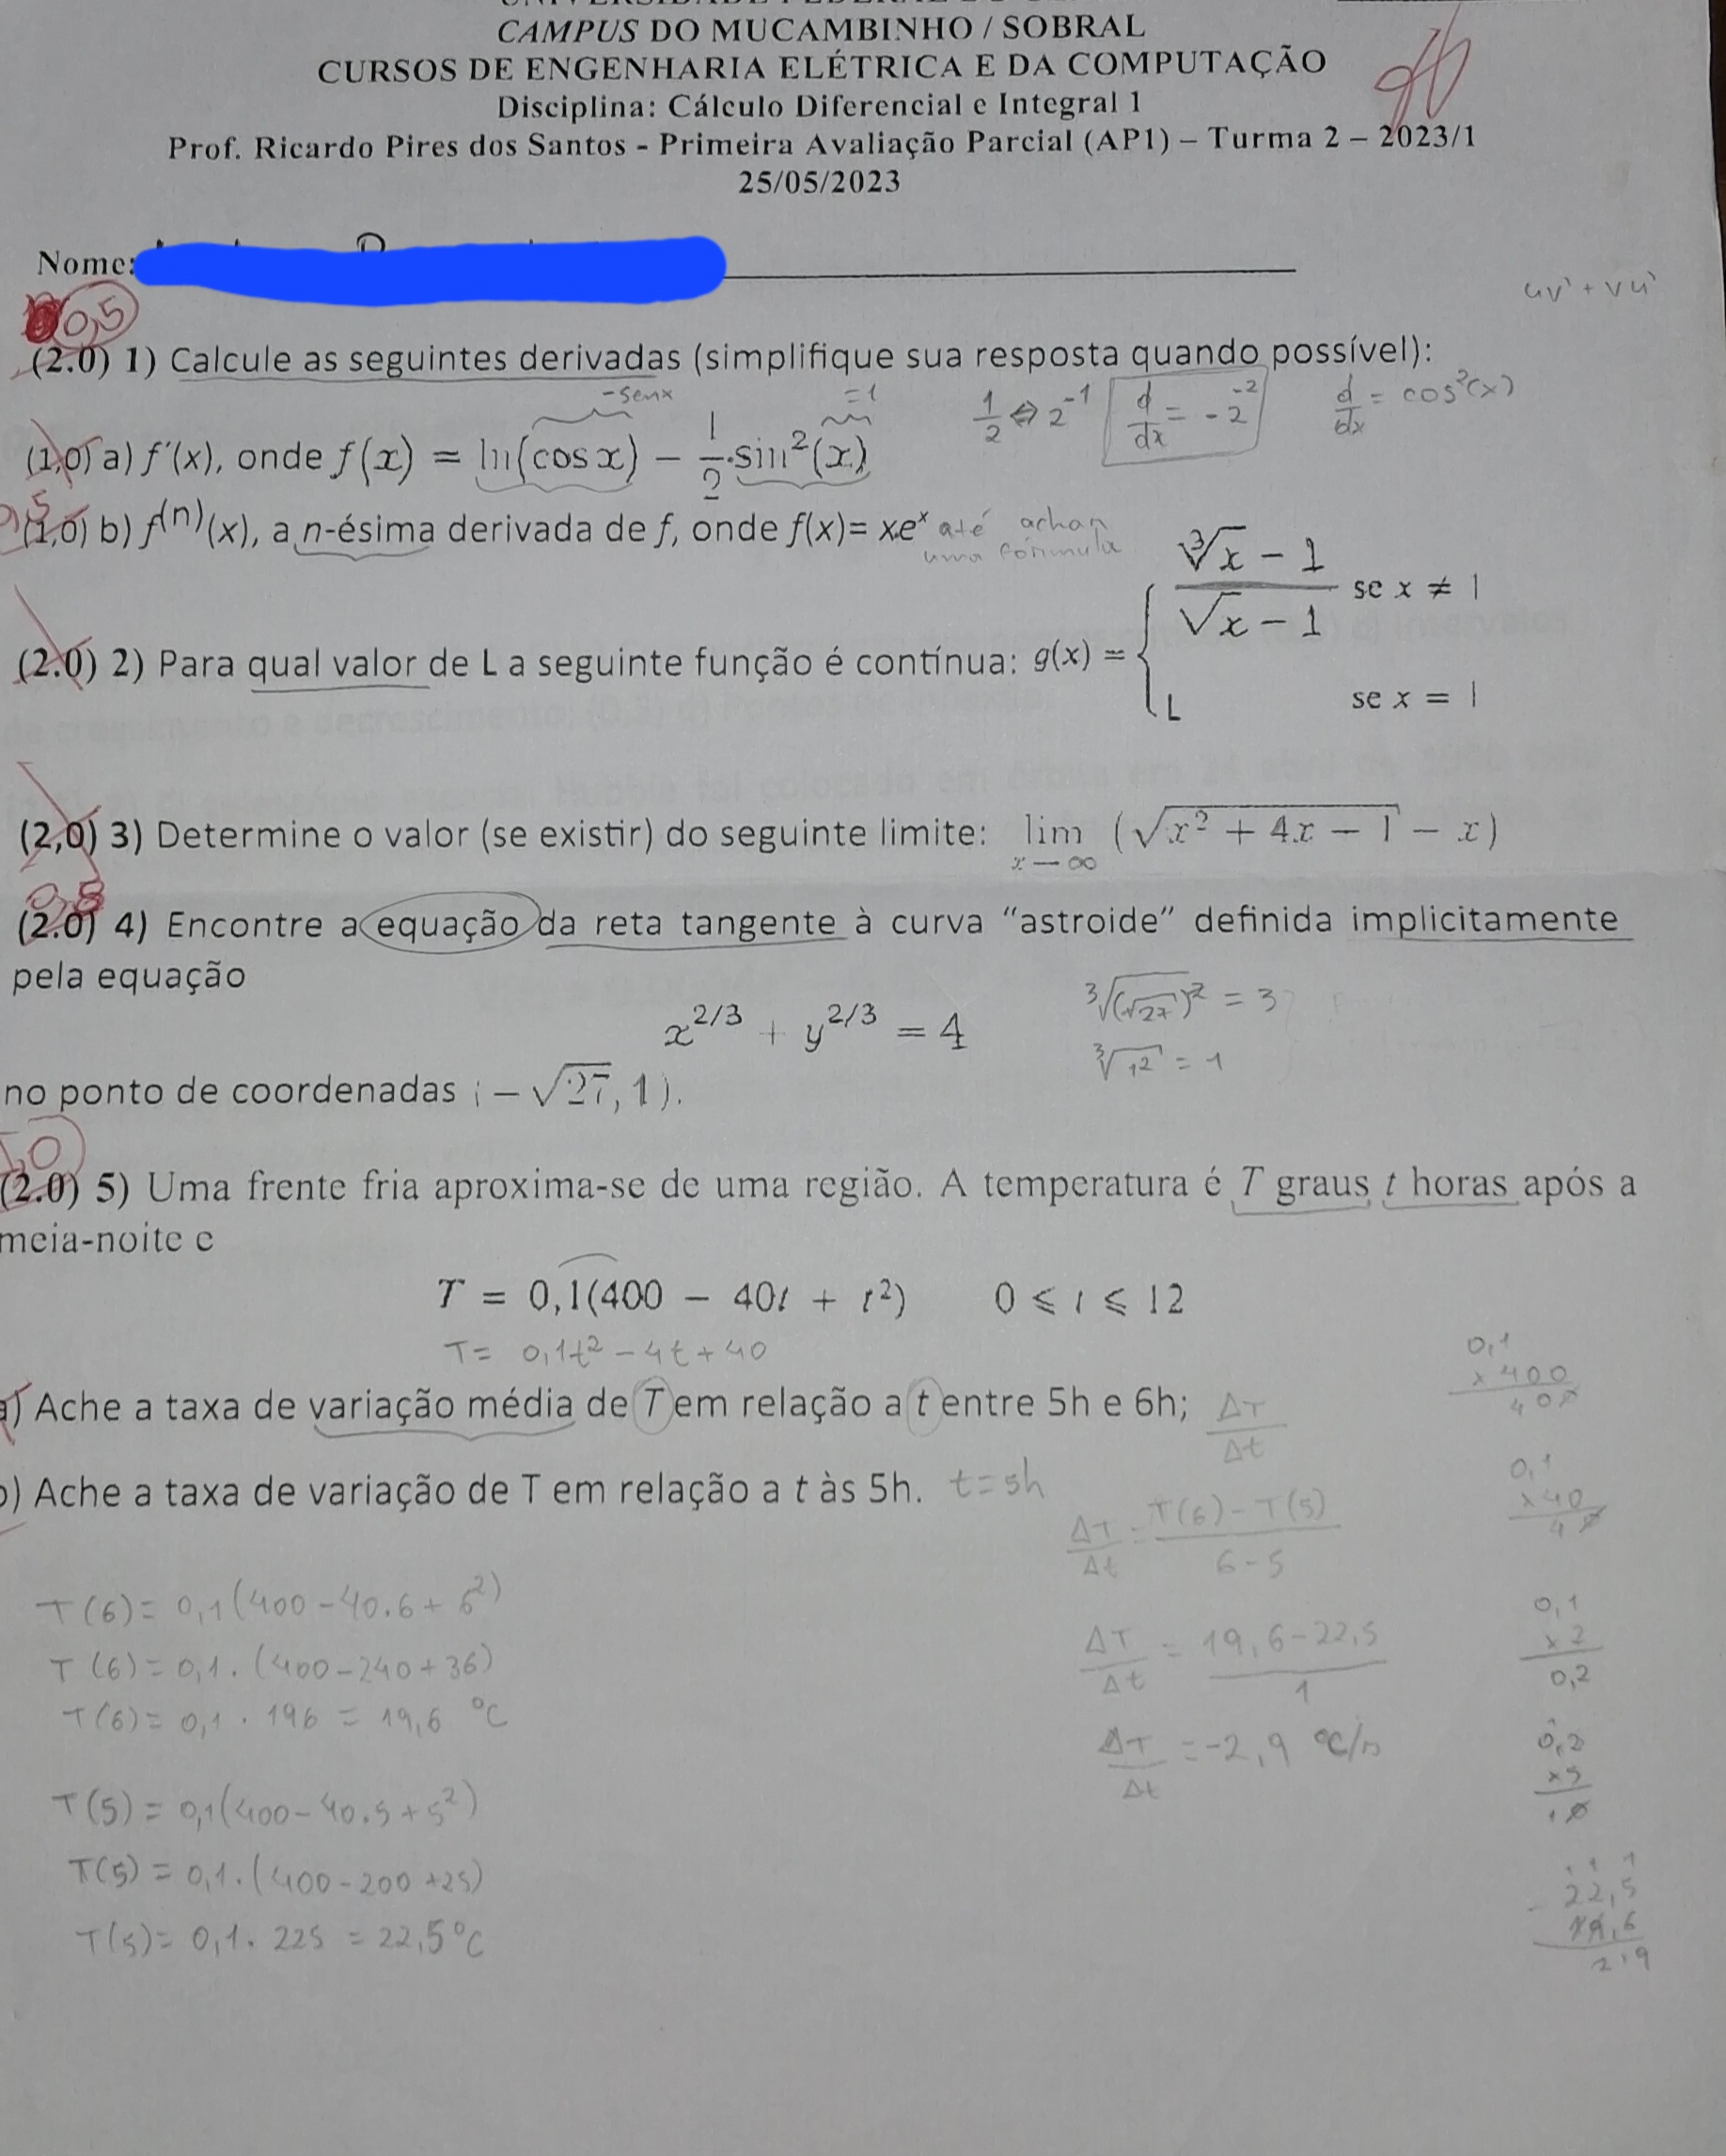 CAMPUS DO MUCAMBINHO / SOBRAL
CURSOS DE ENGENHARIA ELÉTRICA E DA COMPUTAÇÃO
Disciplina: Cálculo Diferencial e Integral 1
Prof. Ricardo Pires dos Santos - Primeira Avaliação Parcial (AP1) – Turma 2 – 2023/1
25/05/2023
Nome:
uv' + vu'
0,5
(2.0) 1) Calcule as seguintes derivadas (simplifique sua resposta quando possível):
-senx =1 1/2 ⇔ 2^-1 d/dx = -2^-2 d/dx = cos²(x)
(1,0) a) f'(x), onde f(x) = ln(cos x) − 1/2·sin²(x)
0,5
(1,0) b) f^(n)(x), a n-ésima derivada de f, onde f(x)= x.e^x até achar
uma fórmula
(2.0) 2) Para qual valor de L a seguinte função é contínua: g(x) = { (∛x − 1)/(√x − 1) se x ≠ 1
L se x = 1
(2,0) 3) Determine o valor (se existir) do seguinte limite: lim x→∞ (√(x² + 4x − 1) − x)
(2.0) 4) Encontre a equação da reta tangente à curva “astroide” definida implicitamente
pela equação
∛(√27)² = 3
x^2/3 + y^2/3 = 4
∛1² = 1
no ponto de coordenadas (−√27, 1).
1,0
(2.0) 5) Uma frente fria aproxima-se de uma região. A temperatura é T graus t horas após a
meia-noite e
T = 0,1(400 − 40t + t²) 0 ⩽ t ⩽ 12
T= 0,1t² − 4t + 40
0,1
x 400
400
a) Ache a taxa de variação média de T em relação a t entre 5h e 6h; ΔT/Δt
b) Ache a taxa de variação de T em relação a t às 5h. t=5h
0,1
x40
40
ΔT/Δt = T(6) - T(5) / 6-5
T(6) = 0,1(400 - 40.6 + 6²)
T(6) = 0,1.(400-240+36)
T(6) = 0,1 . 196 = 19,6 °C
ΔT/Δt = 19,6-22,5 / 1
ΔT/Δt = -2,9 °C/h
0,1
x2
0,2
0,2
x5
10
T(5) = 0,1(400-40.5+5²)
T(5) = 0,1.(400-200+25)
T(5) = 0,1. 225 = 22,5°C
22,5
19,6
2,9